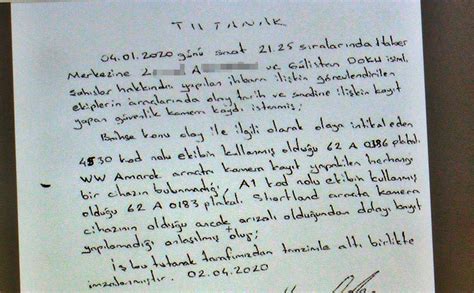 TUTANAK
04.01.2020 günü saat 21.25 sıralarında Haber
Merkezine Z A ve Gülistan Doku isimli
şahıslar hakkında yapılan ihbara ilişkin görevlendirilen
ekiplerin araçlarında olay tarih ve saatine ilişkin kayıt
yapan güvenlik kamera kaydı istenmiş;
Bahse konu olay ile ilgili olarak olaya intikal eden
4530 kod nolu ekibin kullanmış olduğu 62 A 0386 plakalı
WW Amarok araçta kamera kayıt yapabilen herhangi
bir cihazın bulunmadığı, A1 kod nolu ekibin kullanmış
olduğu 62 A 0183 plakalı Shortland araçta kamera
cihazının olduğu ancak arızalı olduğundan dolayı kayıt
yapılamadığı anlaşılmış olup;
İş bu tutanak tarafımızdan tanzimle altı birlikte
imzalanmıştır. 02.04.2020